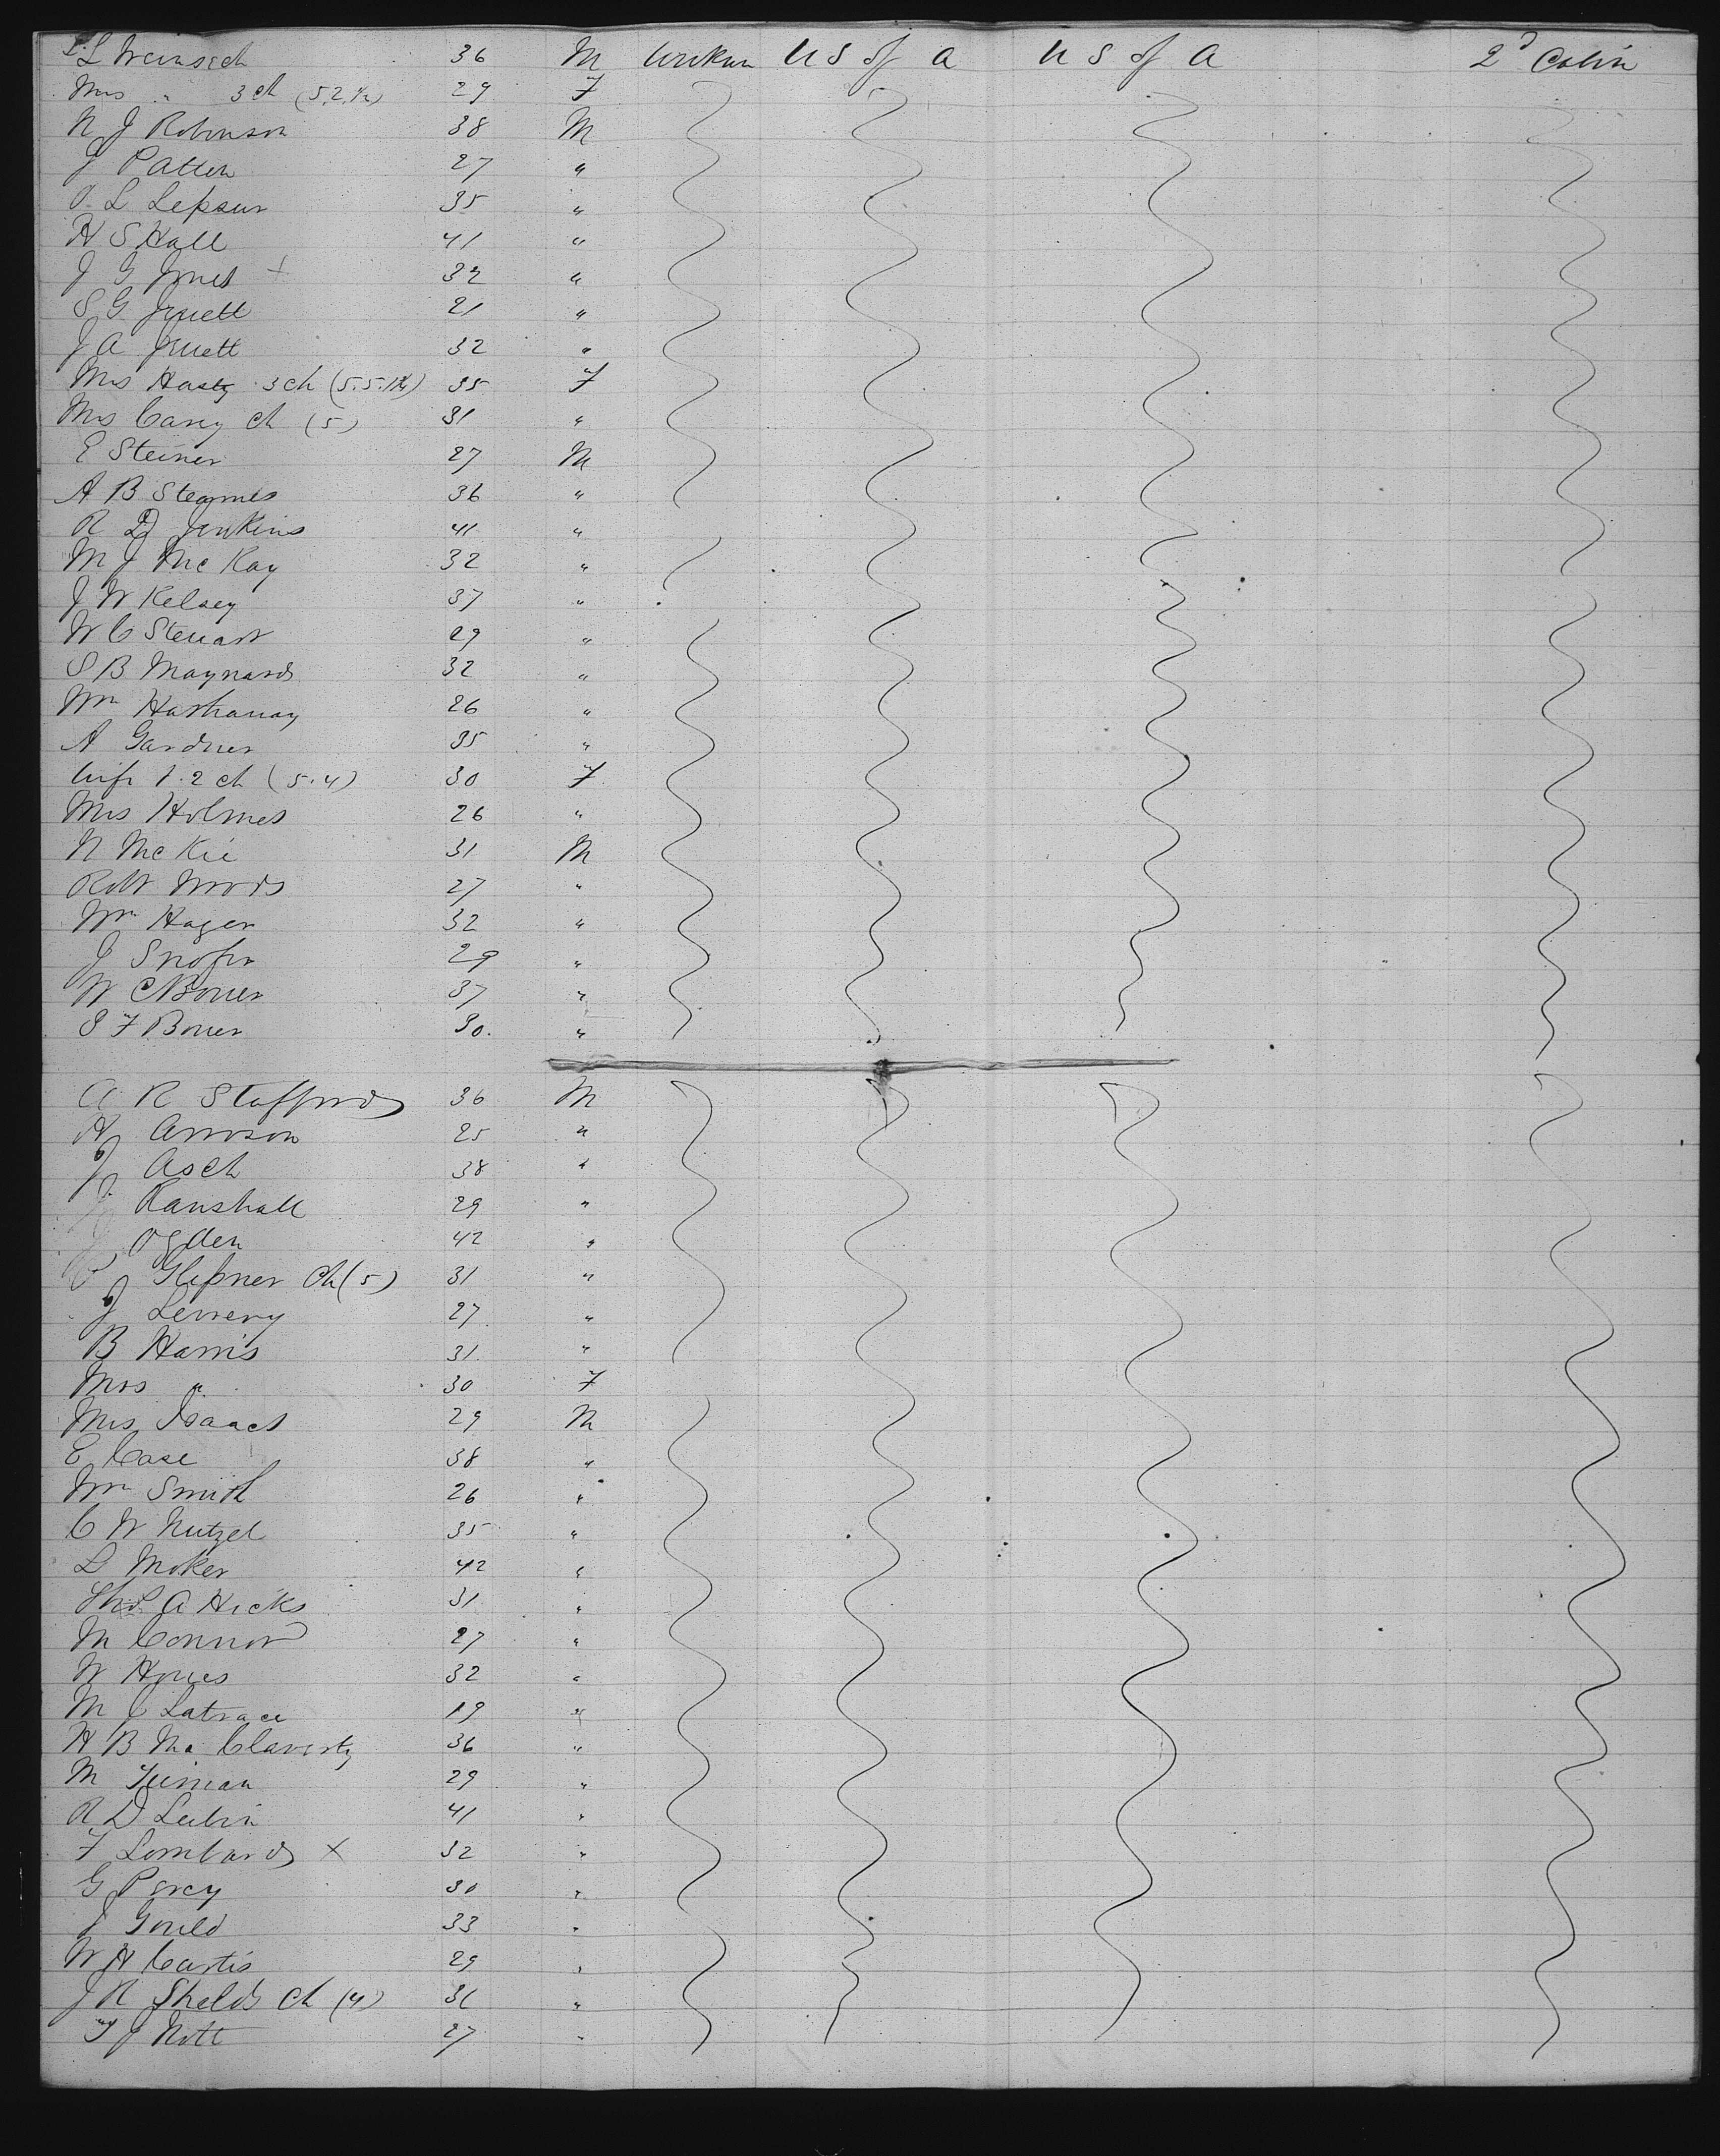 L Weinsich 36 M unknown U S of A U S of A 2d Cabin
Mrs " 3 ch (5.2.½) 29 F
N J Robinson 38 M
J Patten 27 "
L Lepsur 35 "
H S Hall 41 "
J G Jones + 32 "
S G Jewett 21 "
J A Jewett 32 "
Mrs Hasty 3 ch 35 F
Mrs Carey ch (5) 31 "
E Steiner 27 M
A B Stearnes 36 "
R D Jenkins 41 "
M J McKay 32 "
J W Kelsey 37 "
W C Stewart 29 "
S B Maynard 32 "
Wm Hathaway 26 "
A Gardner 35 "
Wife & 2 ch (5.4) 30 F
Mrs Holmes 26 "
N McKie 31 M
Robt Woods 27 "
Wm Hager 32 "
J 29 "
W C Bower 37 "
S F Bower 30. "
A R Stafford 36 M
H Aronson 25 "
J Asch 38 "
J Ranshall 29 "
J Ogden 42 "
Glepner Ch (5) 31 "
J 27 "
B Harris 31 "
Mrs " 30 F
Mrs Isaacs 29 M
E Case 38 "
Wm Smith 26 "
C W Nutzel 35 "
D Moker 42 "
Thos A Hicks 31 "
M Connor 27 "
W Howes 32 "
M C Latrace 19 "
H B Mc Claverty 36 "
M 29 "
R D Lubin 41 "
F Lombard X 32 "
G Percy 30 "
J Gould 33 "
W H Curtis 29 "
J R Shelds Ch (4) 36 "
J Nott 27 "